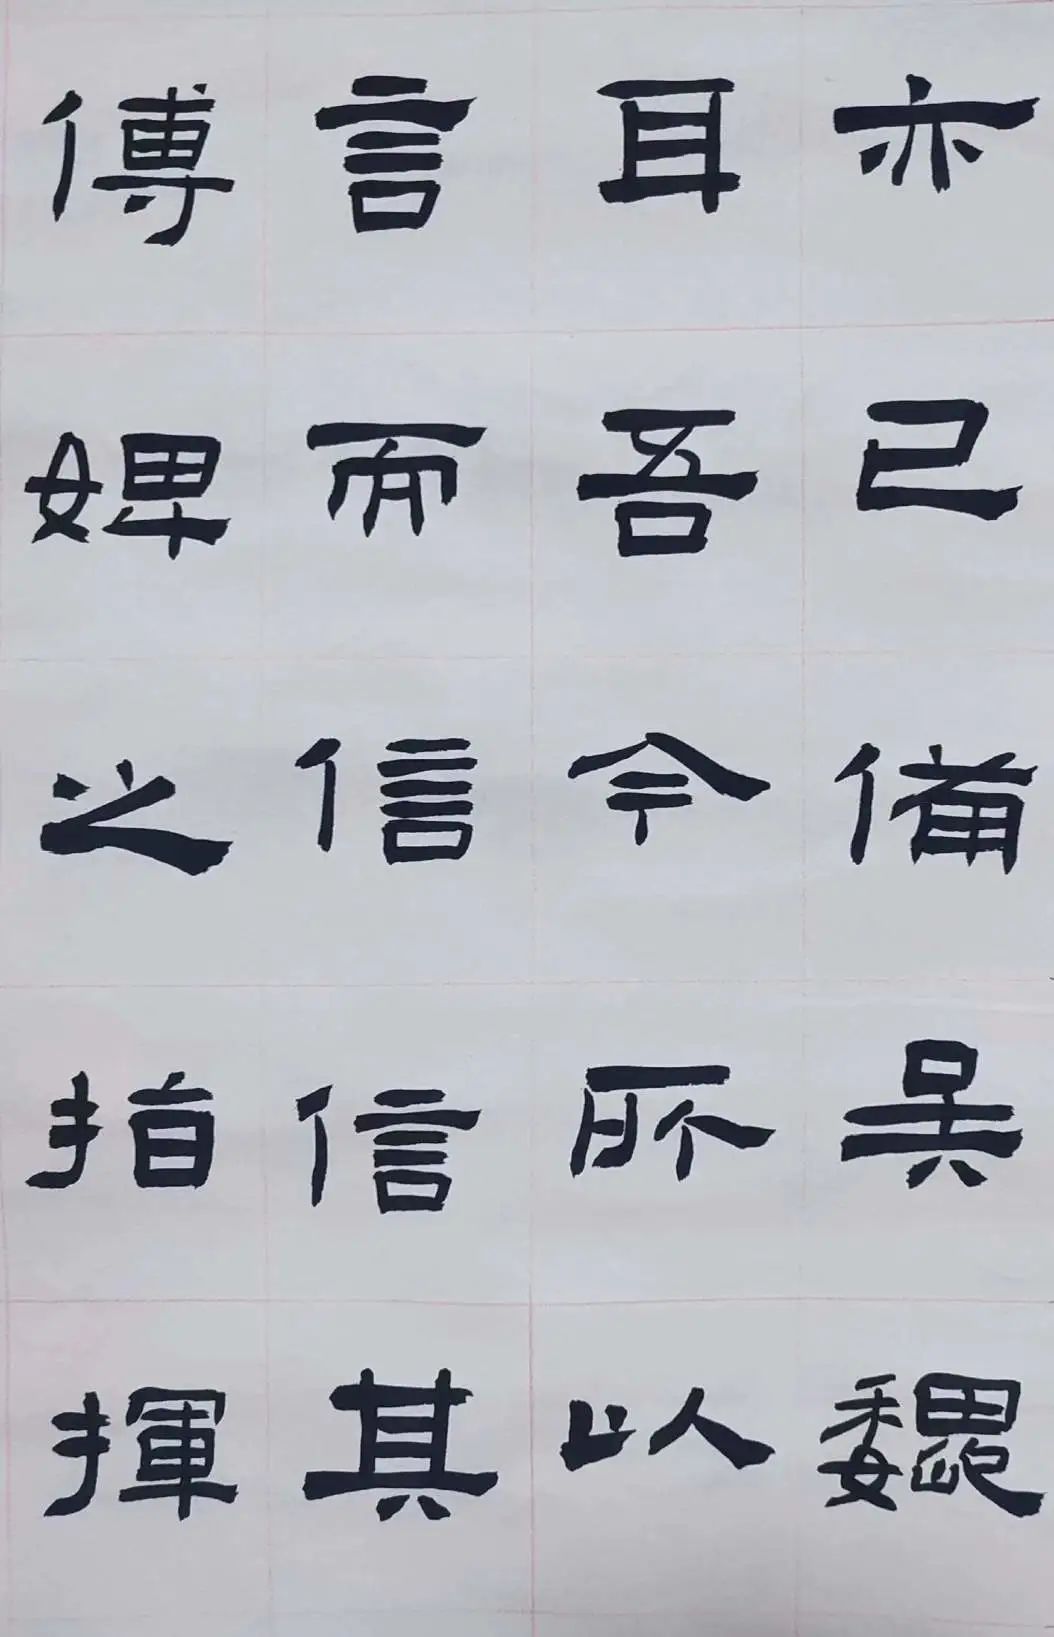 亦已備吳魏
耳吾今所以
言而信信其
傅婢之拍揮